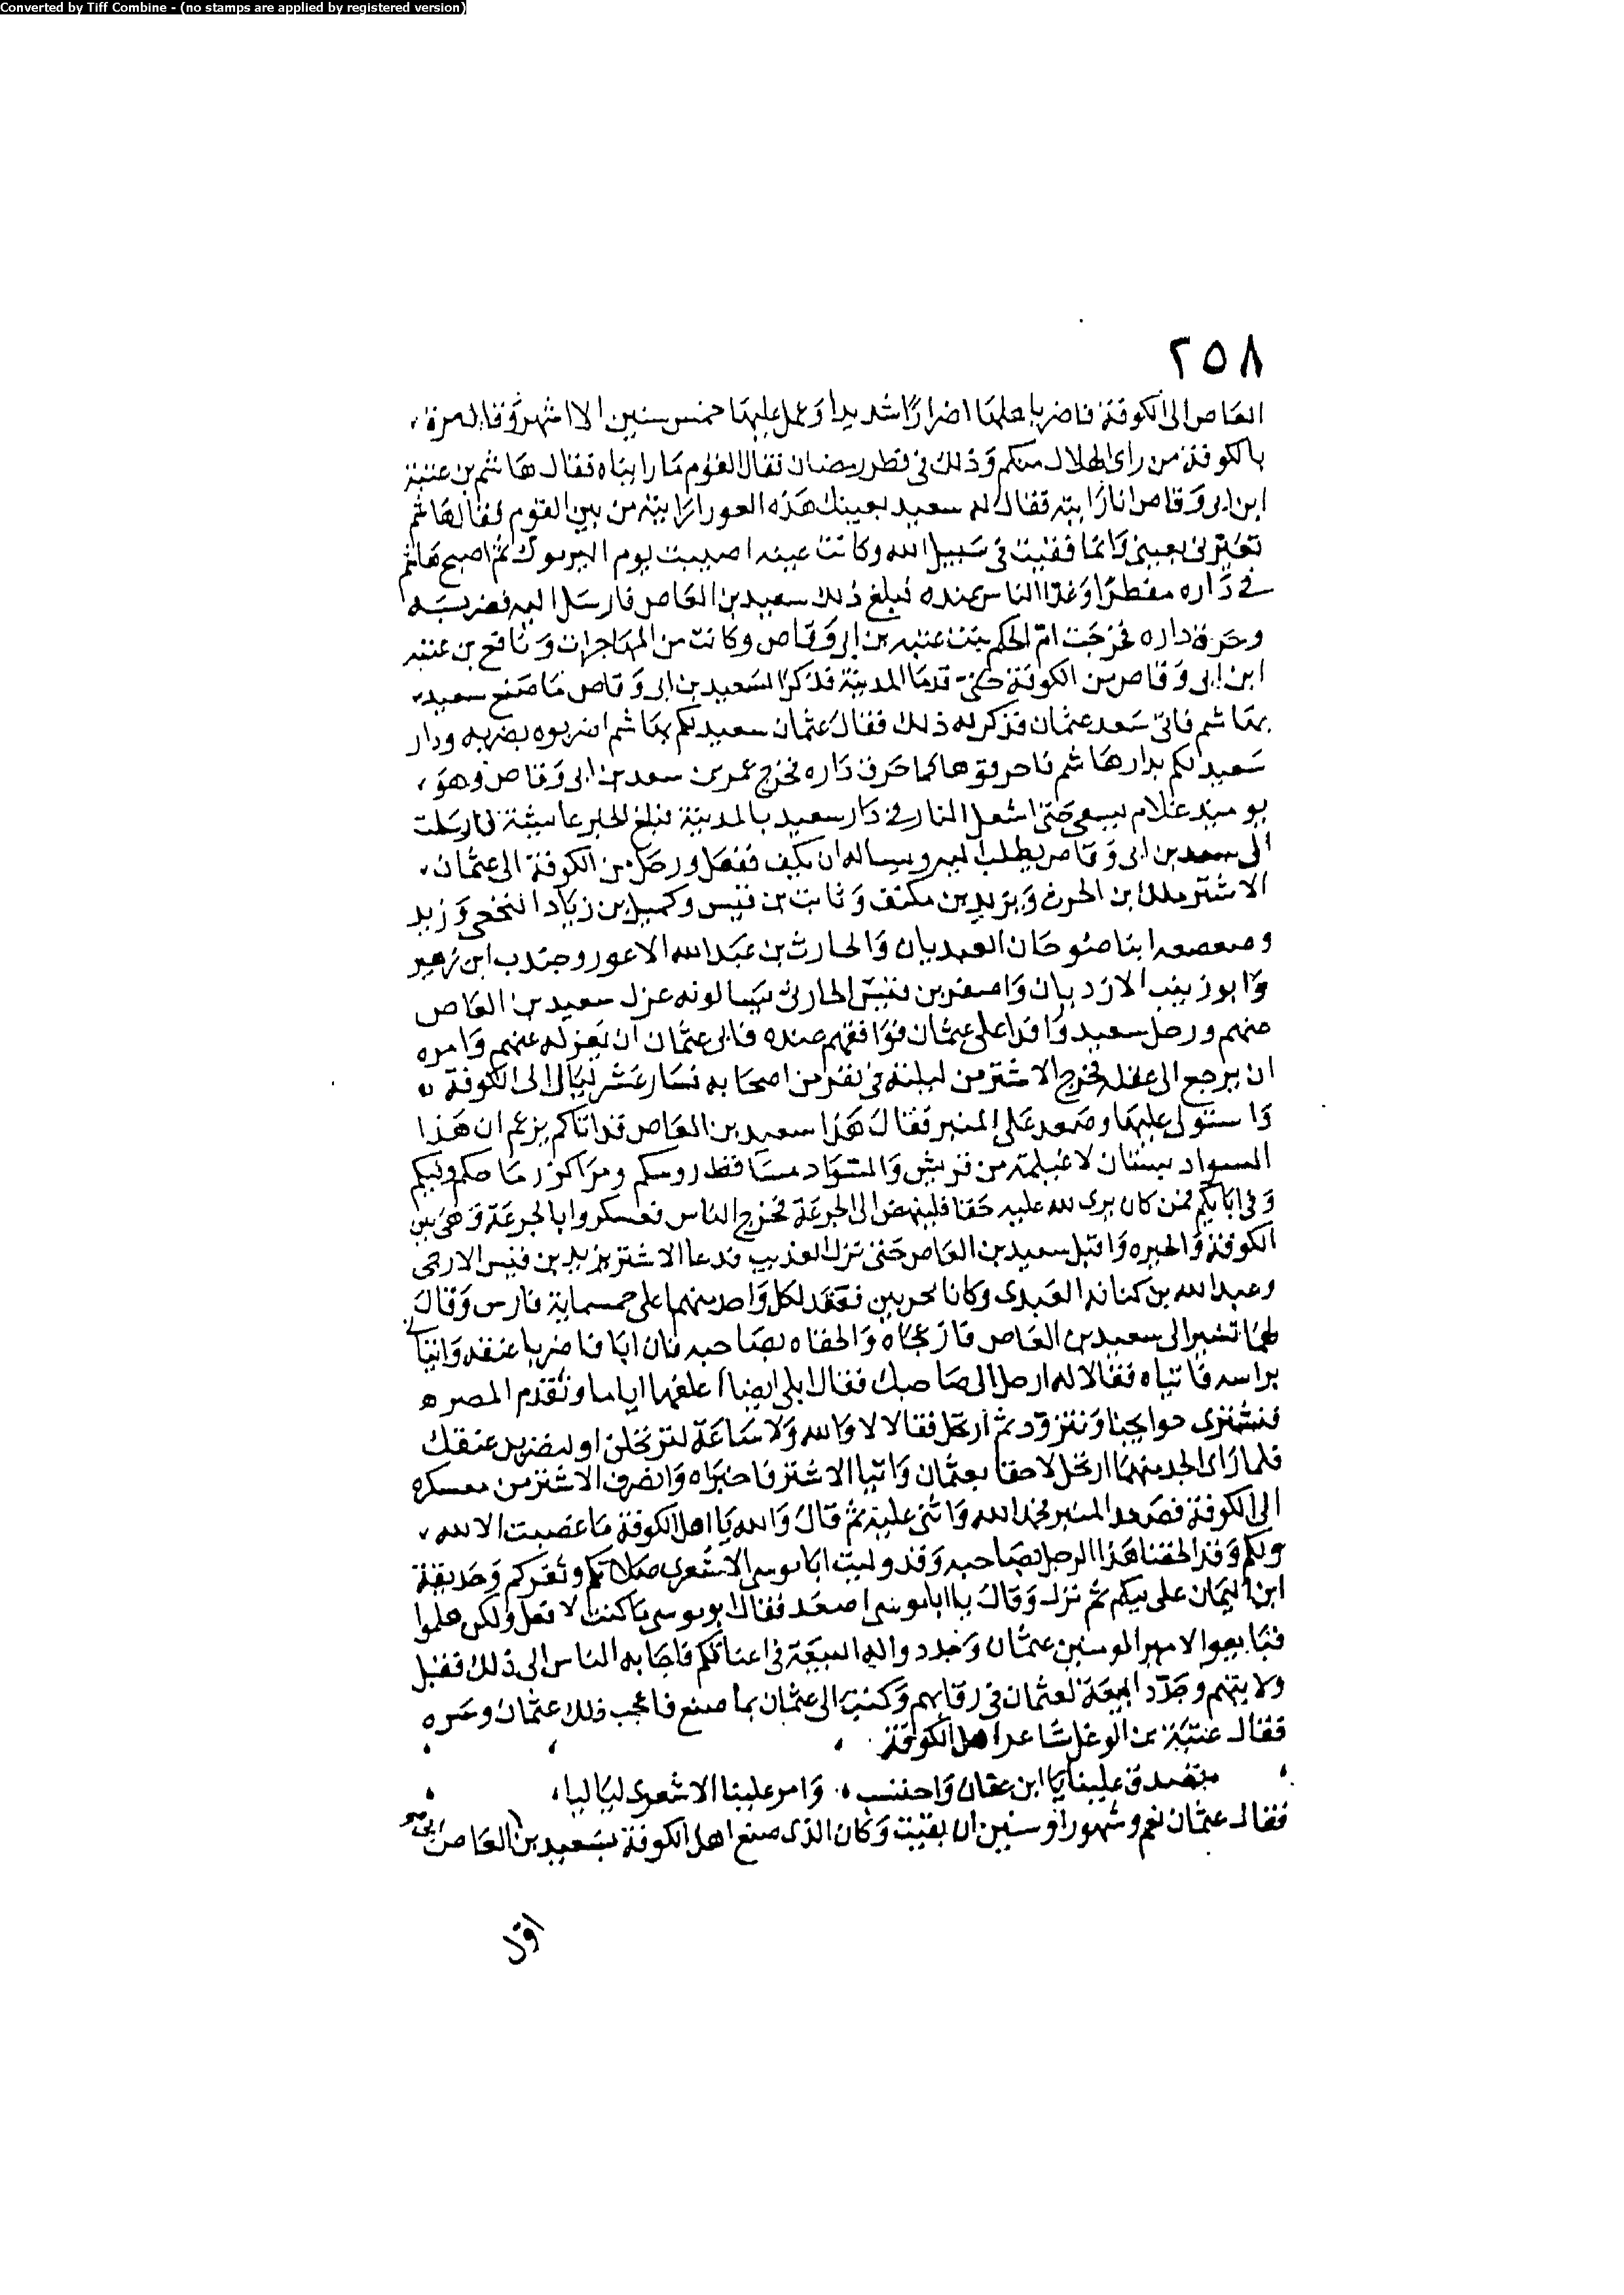 Converted by Tiff Combine - (no stamps are applied by registered version)
٢٥٨
العاص الى الكوفة فاضر باهلها اضرارا شديدا وعمل عليها خمس سنين الا اشهر وقال مرة
بالكوفة من راى الهلال منكم وذلك فى فطر رمضان فقال القوم ما رايناه فقال هاشم بن عتبة
ابن ابى وقاص انا رايته فقال له سعيد بعينك هذه العورا رايته من بين القوم فقال هاشم
تعيرنى بعينى وانما فقيت فى سبيل الله وكانت عينه اصيبت يوم اليرموك ثم اصبح هاشم
فى داره مفطرا وغدا الناس عنده فبلغ ذلك سعيد بن العاص فارسل اليه فضربه
وحرق داره فخرجت ام الحكم بنت عتبه بن ابى وقاص وكانت من المهاجرات ونافع بن عتبه
ابن ابى وقاص من الكوفة حتى قدما المدينة فذكرا لسعد بن ابى وقاص ما صنع سعيد
بهاشم فاتى سعد عثمان فذكر له ذلك فقال عثمان سعيد لكم بهاشم اضربوه بضربه ودار
سعيد لكم بدار هاشم فاحرقوها كما حرق داره فخرج عمر بن سعد بن ابى وقاص وهو
يوميذ غلام يسعى حتى اشعل النار فى دار سعيد بالمدينة فبلغ الخبر عايشة فارسلت
الى سعد بن ابى وقاص يطلب اليه ويساله ان يكف ففعل ورحل من الكوفة الى عثمان
الاشتر ملك ابن الحرث ويزيد بن مكنف وثابت بن قيس وكميل بن زياد النخعى وزيد
وصعصعه ابنا صوحان العبديان والحارث بن عبد الله الاعور وجندب ابن زهير
وابو زينب الازديان واصغر بن قيس الحارثى يسالونه عزل سعيد بن العاص
عنهم ورحل سعيد وافدا على عثمان فوافقهم عنده فابى عثمان ان يعزله عنهم وامره
ان يرجع الى عمله فخرج الاشتر من ليلته فى نفر من اصحابه فسار عشر ليال الى الكوفة
واستولى عليها وصعد على المنبر فقال هذا سعيد بن العاص قد اتاكم يزعم ان هذا
السواد بستان لاغيلمة من قريش والسواد مساقط روسكم ومراكز رماحكم وفيكم
وفى ابايكم فمن كان يرى لله عليه حقا فلينهض الى الجرعة فخرج الناس فعسكروا بالجرعة وهى بين
الكوفة والحيره واقبل سعيد بن العاص حتى نزل العذيب فدعا الاشتر يزيد بن قيس الارحبى
وعبد الله بن كنانه العبدى وكانا محربين فعقد لكل واحد منهما على خمسماية فارس وقال
لهما تسيرا الى سعيد بن العاص فازعجاه والحقاه بصاحبه فان ابا فاضربا عنقه واتيانى
براسه فاتياه فقالا له ارحل الى صاحبك فقال ابلى انضا اعلفها اياما ونقدم المصر
فنشترى حوايجنا ونتزود ثم ارتحل فقالا لا والله ولا ساعة لترتحلن او لنضربن عنقك
فلما راى الجد منهما ارتحل لاحقا بعثمان واتيا الاشتر فاخبراه وانصرف الاشتر من معسكره
الى الكوفة فصعد المنبر فحمد الله واثنى عليه ثم قال والله يا اهل الكوفة ما غضبت الا لله
ولكم وقد الحقنا هذا الرجل بصاحبه وقد وليت ابا موسى الاشعرى صلاتكم وثغركم وحذيفة
ابن اليمان على فيكم ثم نزل وقال يا ابا موسى اصعد فقال ابو موسى ما كنت لافعل ولكن هلموا
فبايعوا لامير المومنين عثمان وجددوا له البيعة فى اعناقكم فاجابه الناس الى ذلك فقبل
ولايتهم وجدد البيعة لعثمان فى رقابهم وكتب الى عثمان بما صنع فاعجب ذلك عثمان وسره
فقال عتبة بن الوغل شاعر اهل الكوفة
تصدق علينا يا ابن عفان واحتسب وامر علينا الاشعرى لياليا
فقال عثمان نعم وشهورا وسنين ان بقيت وكان الذى صنع اهل الكوفة بسعيد بن العاص
اول